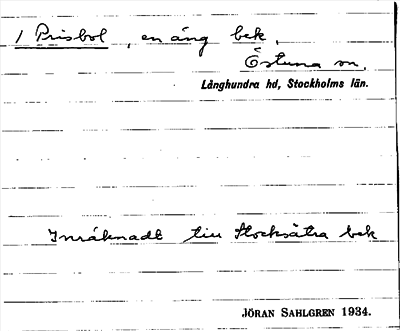 1 Prisbol, en äng bek,
Östuna sn,
Långhundra hd, Stockholms län.
Inräknadt till Stocksätra bek
JÖRAN SAHLGREN 1934.